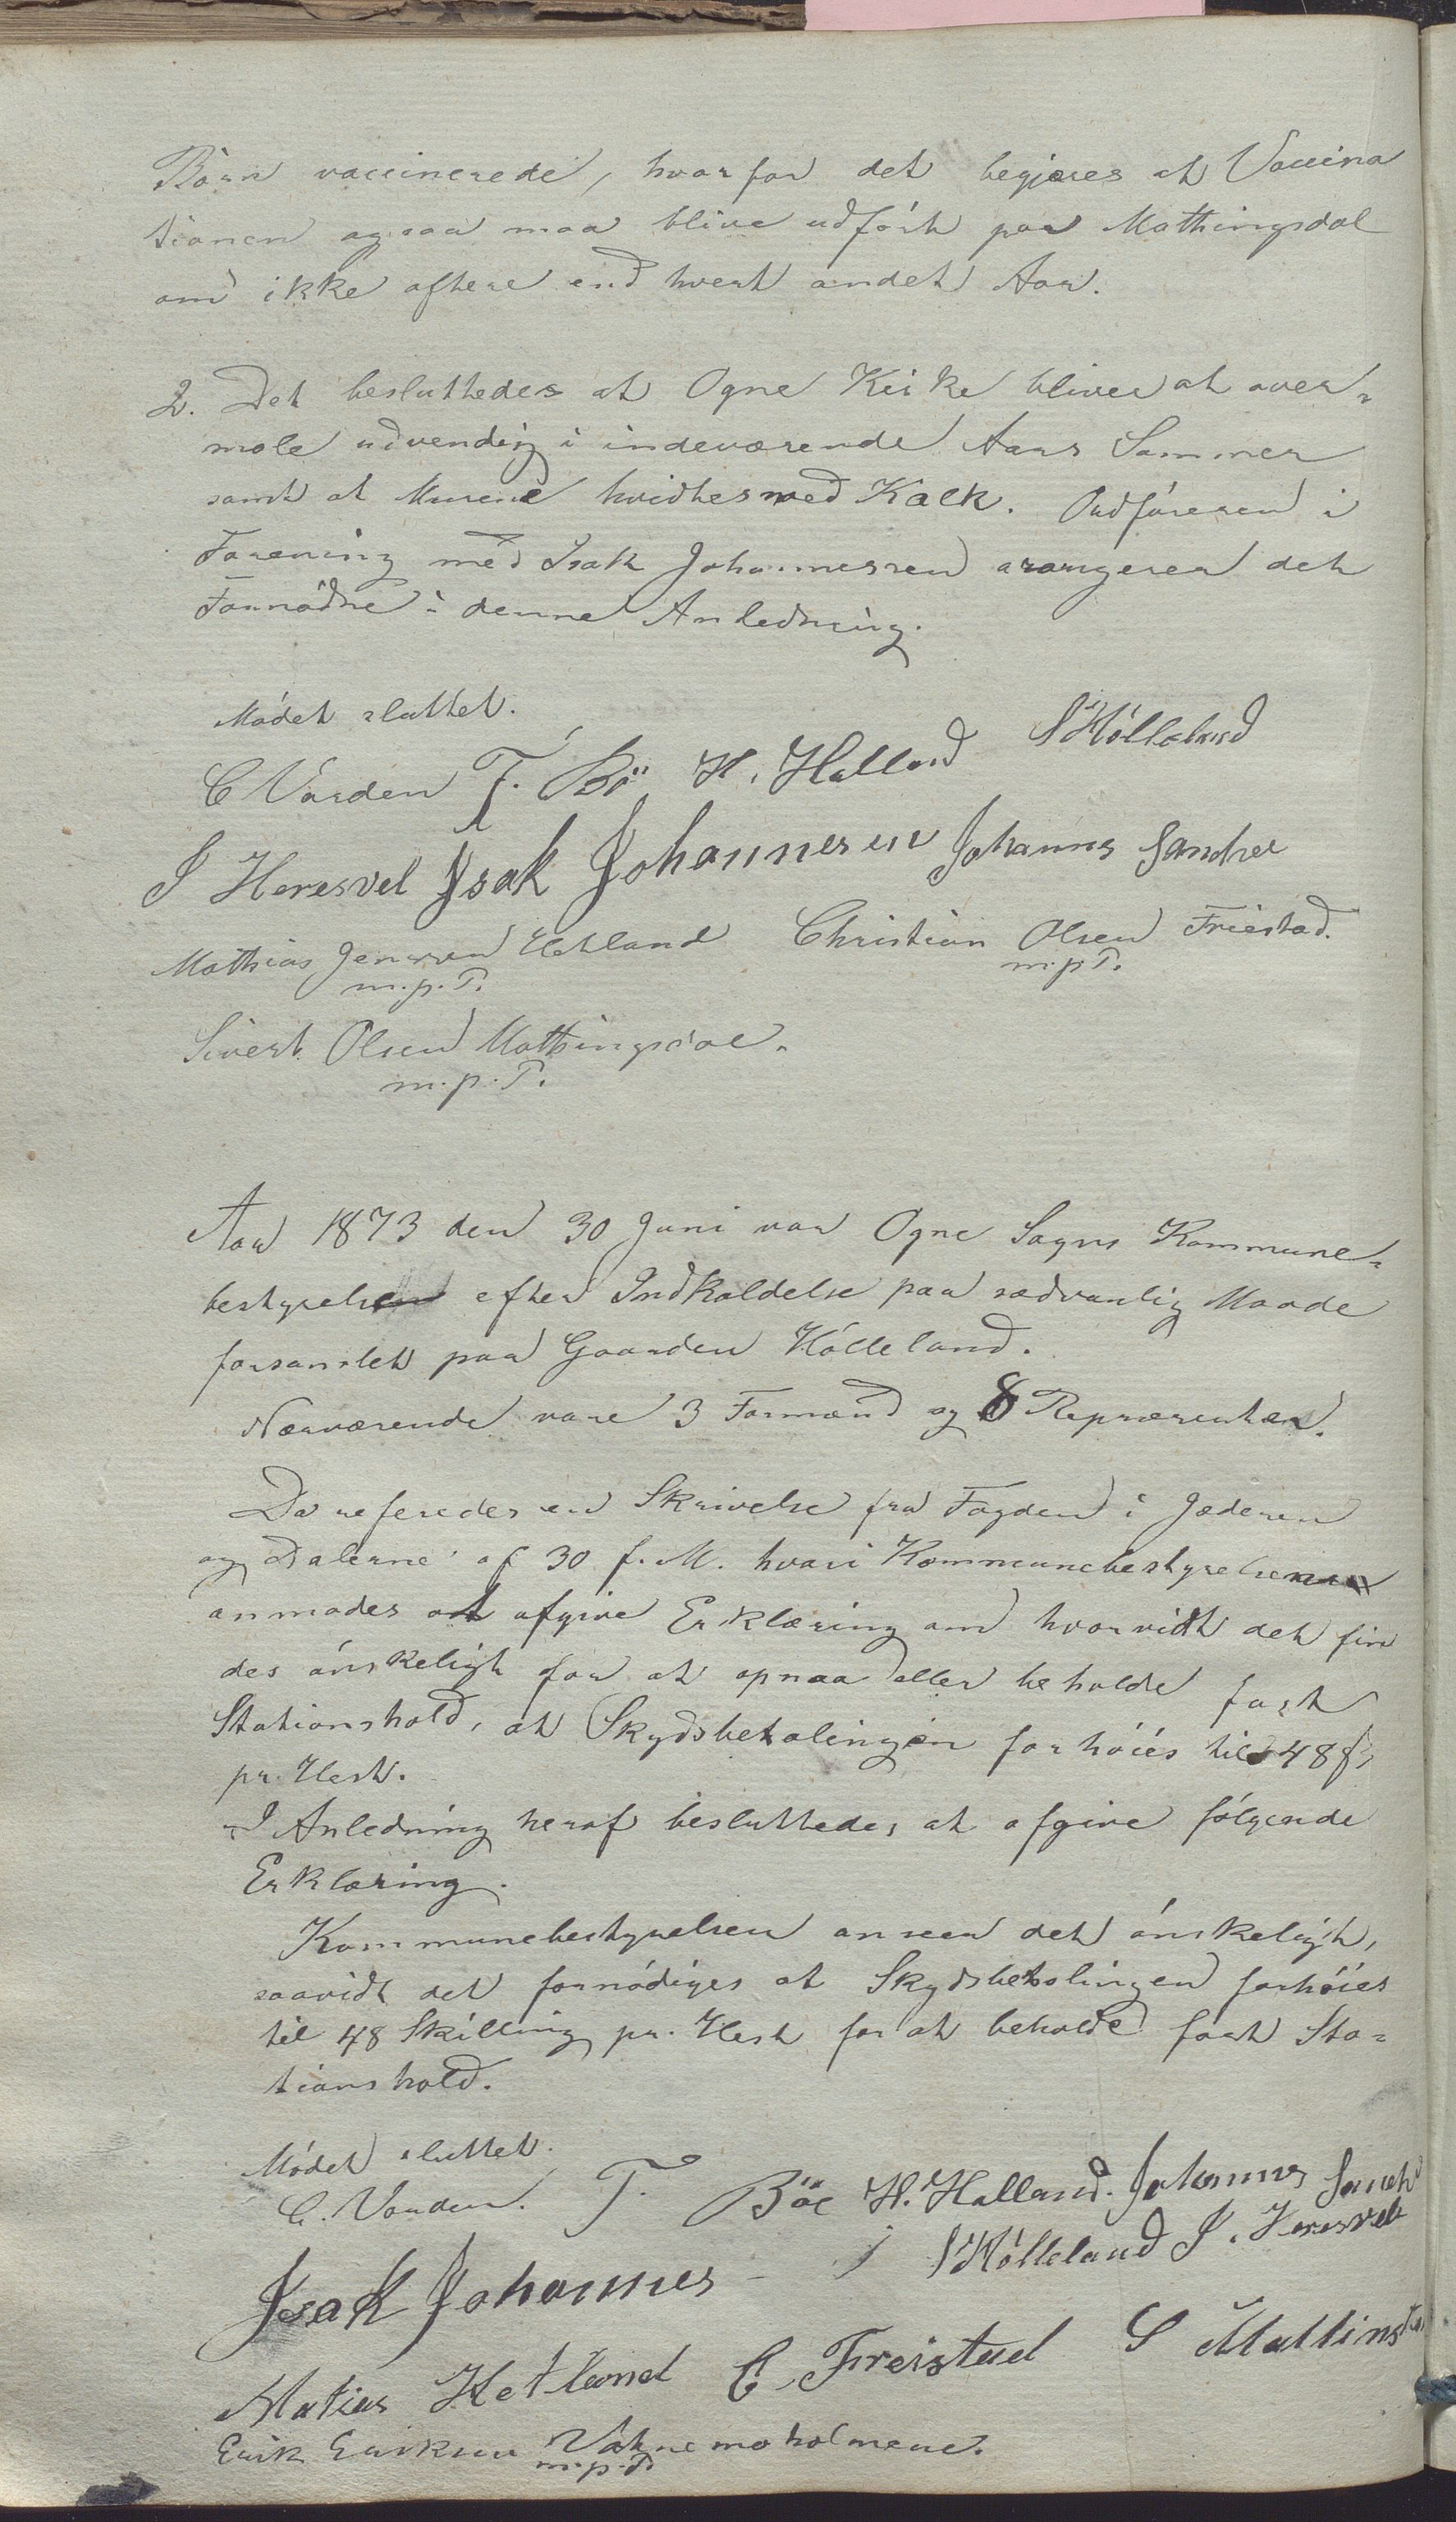 Börn vaccinerede, hvorfor det begjæres at Vaccina
tionen ogsaa maa blive udfört paa Mathingsdal
om ikke oftere end hvert andet Aar.
2. Det besluttedes at Ogne Kirke bliver at over-
male udvendig i indeværende Aars Sommer
samt at Murene hvidtes med Kalk. Ordföreren i
Forening med Isak Johannessen arrangerer det
Fornödne i denne Anledning.
Mödet sluttet.
C Varden T. Bö H. Halland S Hölleland
S Heresvel Isak Johannesen Johannes Sandve
Mathias Jenssen Hetland Christian Olsen Friestad.
m.p.P. m.p.P.
Sivert Olsen Mathingsdal.
m.p.P.
Aar 1873 den 30 Juni var Ogne Sogns Kommune-
bestyrelse efter Indkaldelse paa sædvanlig Maade
forsamlet paa Gaarden Hölleland.
Nærværende vare 3 Formænd og 8 Repræsentan.
Da refereredes en Skrivelse fra Fogden i Jæderen
og Dalerne af 30 f. M. hvori Kommunebestyrelsen
anmodes at afgive Erklæring om hvorvidt det fin
des önskeligt for at opnaa eller beholde fast
Stationshold, at Skydsbetalingen forhöies til 48 ß
pr. Hest.
I Anledning heraf besluttedes at afgive fölgende
Erklæring.
Kommunebestyrelsen anseer det önskeligt,
saavidt det fornödiges at Skydsbetalingen forhöies
til 48 Skilling pr. Hest for at beholde fast Sta-
tionshold.
Mödet sluttet.
C. Varden. T. Böe H. Halland. Johannes Sandv
Isak Johannes S Hölleland S. Heresvel
Matias Hetland C. Freistad S Mattins
Erik Eriksen Vatnemoholmene.
m.p.P.